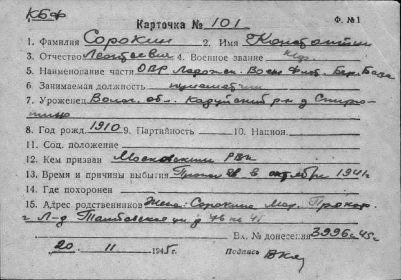 КБФ
Карточка № 101 Ф. №1
1. Фамилия Сорокин 2. Имя Константин
3. Отчество Леонтьевич 4. Военное звание кр.
5. Наименование части ОВР Ладожск. Воен. Флот. Бер. База
6. Занимаемая должность пулеметчик
7. Уроженец Волог. обл. Кадуйский р-н д.
8. Год рожд. 1910 9. Партийность 10. Национ.
11. Соц. положение
12. Кем призван Московским РВК
13. Время и причины выбытия в октябре 1941г.
14. Где похоронен
15. Адрес родственников Жена: Сорокина
г. Л-д Тамбовская ул. д. 46 кв. 41
Вх. № донесения 3996с-45г.
20. 11 1945г. Подпись